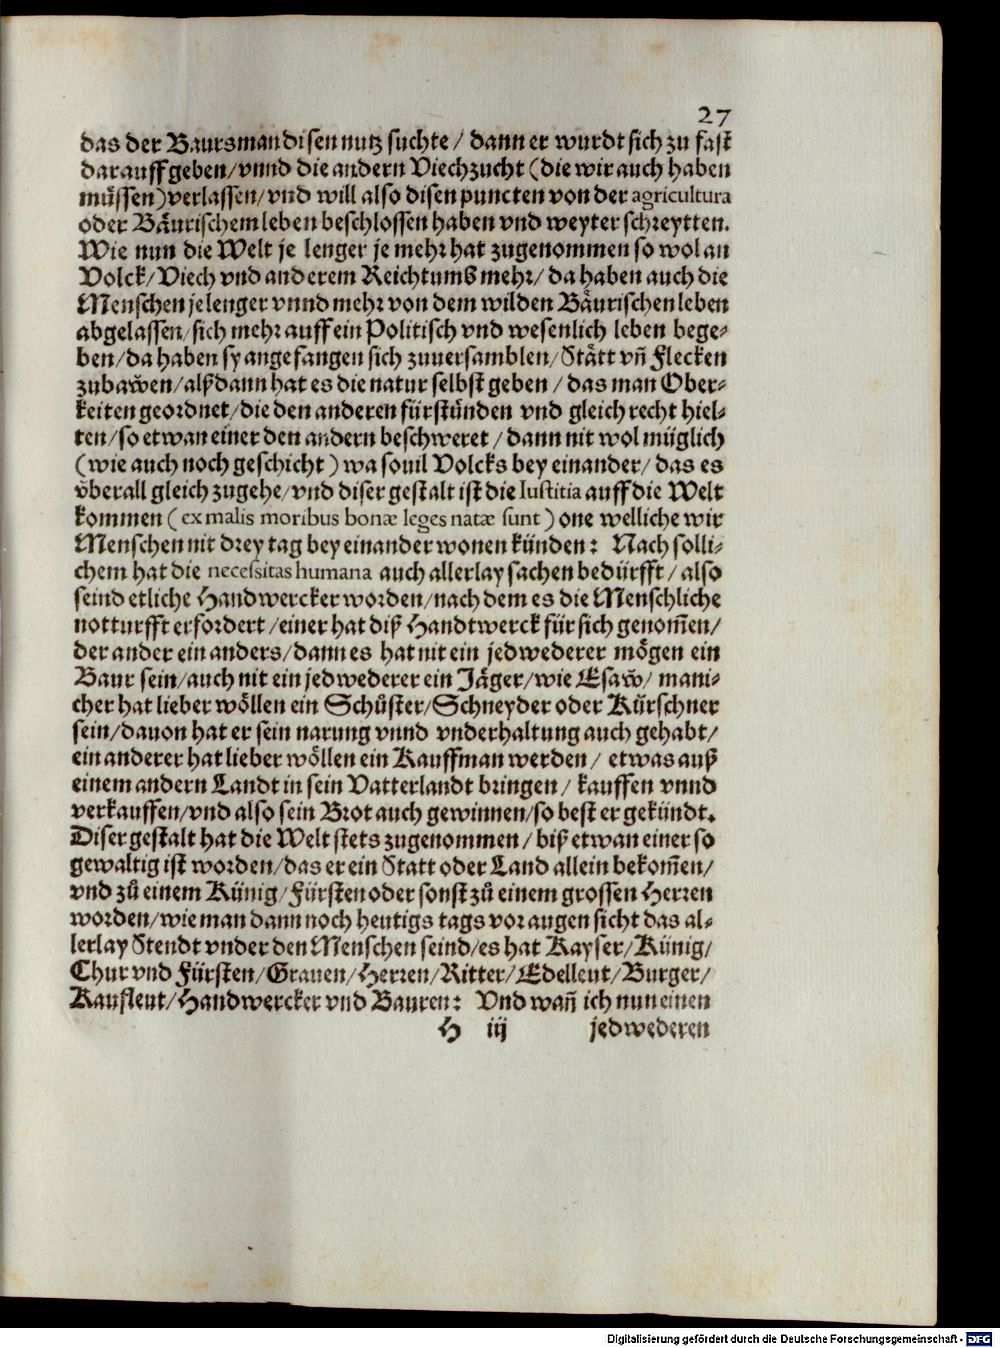 27
das der Baursman disen nutz suchte / dann er wurdt sich zu fast
darauff geben/vnnd die andern Viechzucht (die wir auch haben
müssen) verlassen/vnd will also disen puncten von der agricultura
oder Bäurischem leben beschlossen haben vnd weyter schreytten.
Wie nun die Welt je lenger je mehr hat zugenommen so wol an
Volck/Viech vnd anderem Reichtumb mehr/ da haben auch die
Menschen je lenger vnnd mehr von dem wilden Bäurischen leben
abgelassen/sich mehr auff ein Politisch vnd wesenlich leben bege-
ben/da haben sy angefangen sich zuuersamblen/Stätt vñ Flecken
zubawen/alßdann hat es die natur selbst geben / das man Ober-
keiten geordnet/die den anderen fürstünden vnd gleich recht hiel-
ten/so etwan einer den andern beschweret / dann nit wol müglich
(wie auch noch geschicht) wa souil Volcks bey einander/ das es
überall gleich zugehe/vnd diser gestalt ist die Iustitia auff die Welt
kommen (ex malis moribus bonæ leges natæ sunt) one welliche wir
Menschen nit drey tag bey einander wonen künden: Nach solli-
chem hat die necessitas humana auch allerlay sachen bedürfft/ also
seind etliche Handwercker worden/nach dem es die Menschliche
notturfft erfordert/einer hat diß Handtwerck für sich genom̃en/
der ander ein anders/dann es hat nit ein jedwederer mögen ein
Baur sein/auch nit ein jedwederer ein Jäger/wie Esaw/ mani-
cher hat lieber wöllen ein Schůster/Schneyder oder Kürschner
sein/dauon hat er sein narung vnnd vnderhaltung auch gehabt/
ein anderer hat lieber wöllen ein Kauffman werden/ etwas auß
einem andern Landt in sein Vatterlandt bringen/ kauffen vnnd
verkauffen/vnd also sein Brot auch gewinnen/so best er gekündt.
Diser gestalt hat die Welt stets zugenommen/ biß etwan einer so
gewaltig ist worden/das er ein Statt oder Land allein bekom̃en/
vnd zů einem Künig/Fürsten oder sonst zů einem grossen Herren
worden/wie man dann noch heutigs tags vor augen sicht das al-
lerlay Stendt vnder den Menschen seind/es hat Kayser/Künig/
Chur vnd Fürsten/Grauen/Herren/Ritter/Edelleut/Burger/
Kaufleut/Handwercker vnd Bauren: Vnd wañ ich nun einen
H iij jedwederen
Digitalisierung gefördert durch die Deutsche Forschungsgemeinschaft - DFG